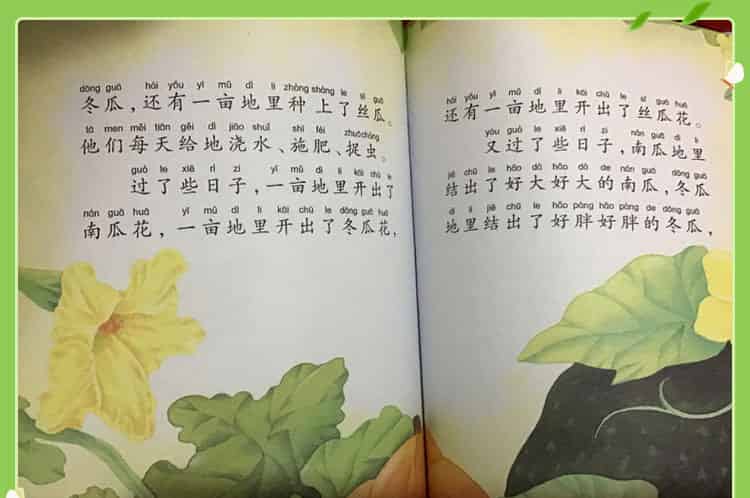 dōng guā hái yǒu yī mǔ dì lǐ zhòng shàng le sī guā
冬瓜，还有一亩地里种上了丝瓜。
tā men měi tiān gěi dì jiāo shuǐ shī féi zhuō chóng
他们每天给地浇水、施肥、捉虫。
guò le xiē rì zi yī mǔ dì lǐ kāi chū le
过了些日子，一亩地里开出了
nán guā huā yī mǔ dì lǐ kāi chū le dōng guā huā
南瓜花，一亩地里开出了冬瓜花，
hái yǒu yī mǔ dì lǐ kāi chū le sī guā huā
还有一亩地里开出了丝瓜花。
yòu guò le xiē rì zi nán guā dì lǐ
又过了些日子，南瓜地里
jiē chū le hǎo dà hǎo dà de nán guā dōng guā
结出了好大好大的南瓜，冬瓜
dì lǐ jiē chū le hǎo pàng hǎo pàng de dōng guā
地里结出了好胖好胖的冬瓜，